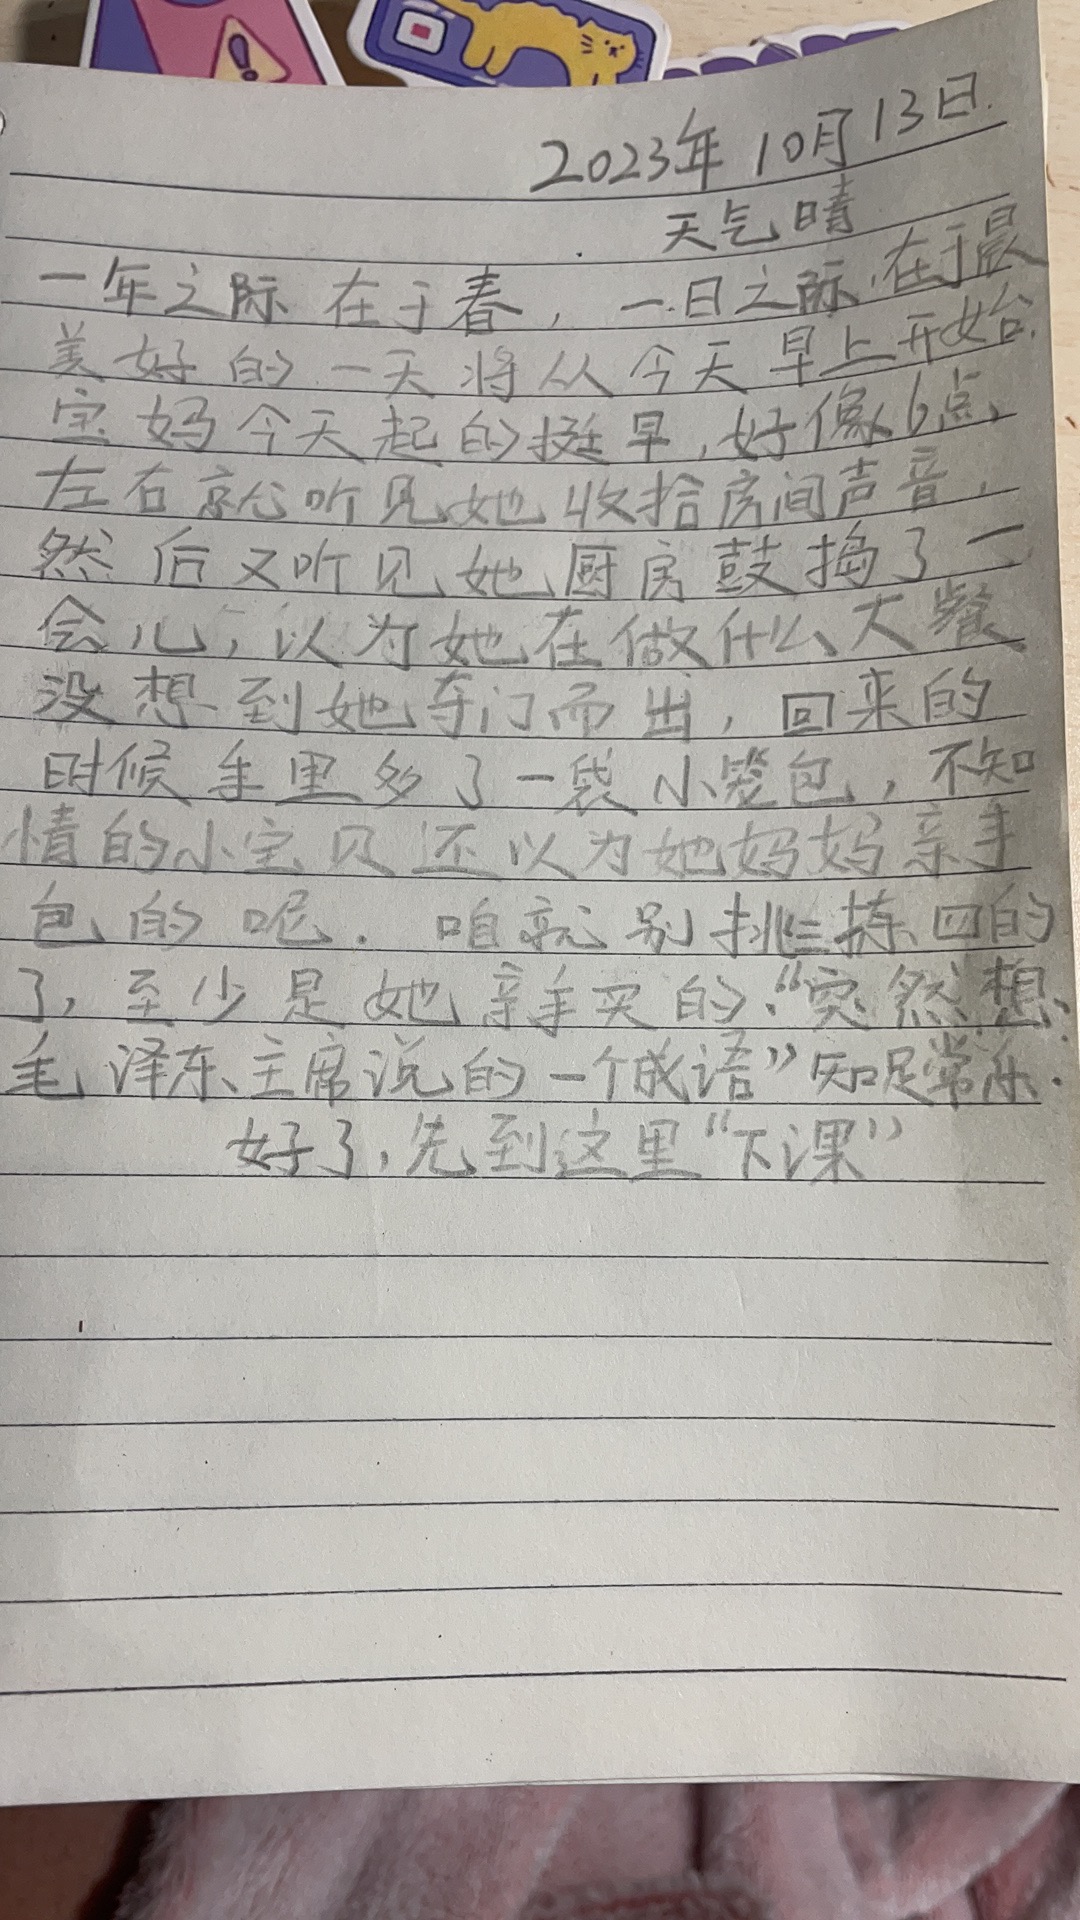 2023年10月13日.
天气晴
一年之际在于春，一日之际，在于晨
美好的一天将从今天早上开始.
宝妈今天起的挺早，好像6点
左右就听见她收拾房间声音，
然后又听见她厨房鼓捣了一
会儿，以为她在做什么大餐
没想到她夺门而出，回来的
时候手里多了一袋小笼包，不知
情的小宝贝还以为她妈妈亲手
包的呢. 咱就别挑三拣四的
了，至少是她亲手买的.“突然想
毛泽东主席说的一个成语”知足常乐.
好了，先到这里“下课”